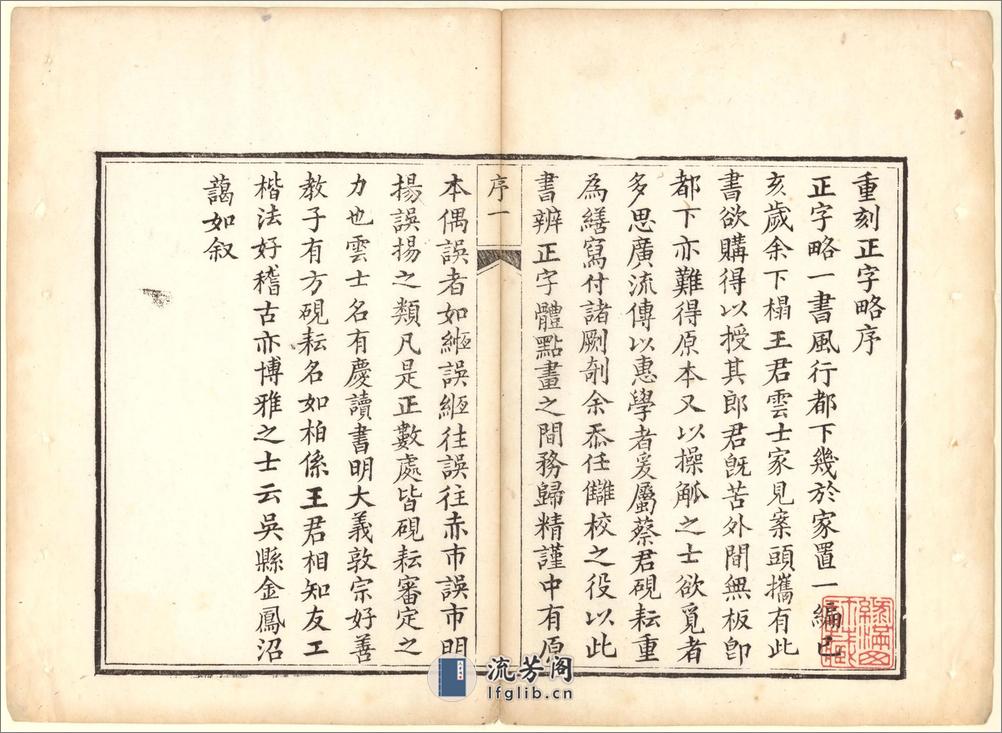 重刻正字略序
正字略一書風行都下幾於家置一編已
亥歲余下榻王君雲士家見案頭攜有此
書欲購得以授其郎君旣苦外間無板卽
都下亦難得原本又以操觚之士欲覓者
多思廣流傳以惠學者爰屬蔡君硯耘重
為繕寫付諸剞劂余忝任讎校之役以此
書辨正字體點畫之間務歸精謹中有原
序一
本偶誤者如緪誤縆往誤往赤巿誤市明
揚誤揚之類凡是正數處皆硯耘審定之
力也雲士名有慶讀書明大義敦宗好善
教子有方硯耘名如柏係王君相知友工
楷法好稽古亦博雅之士云吳縣金鳳沼
藹如叙
流芳阁
lfglib.cn